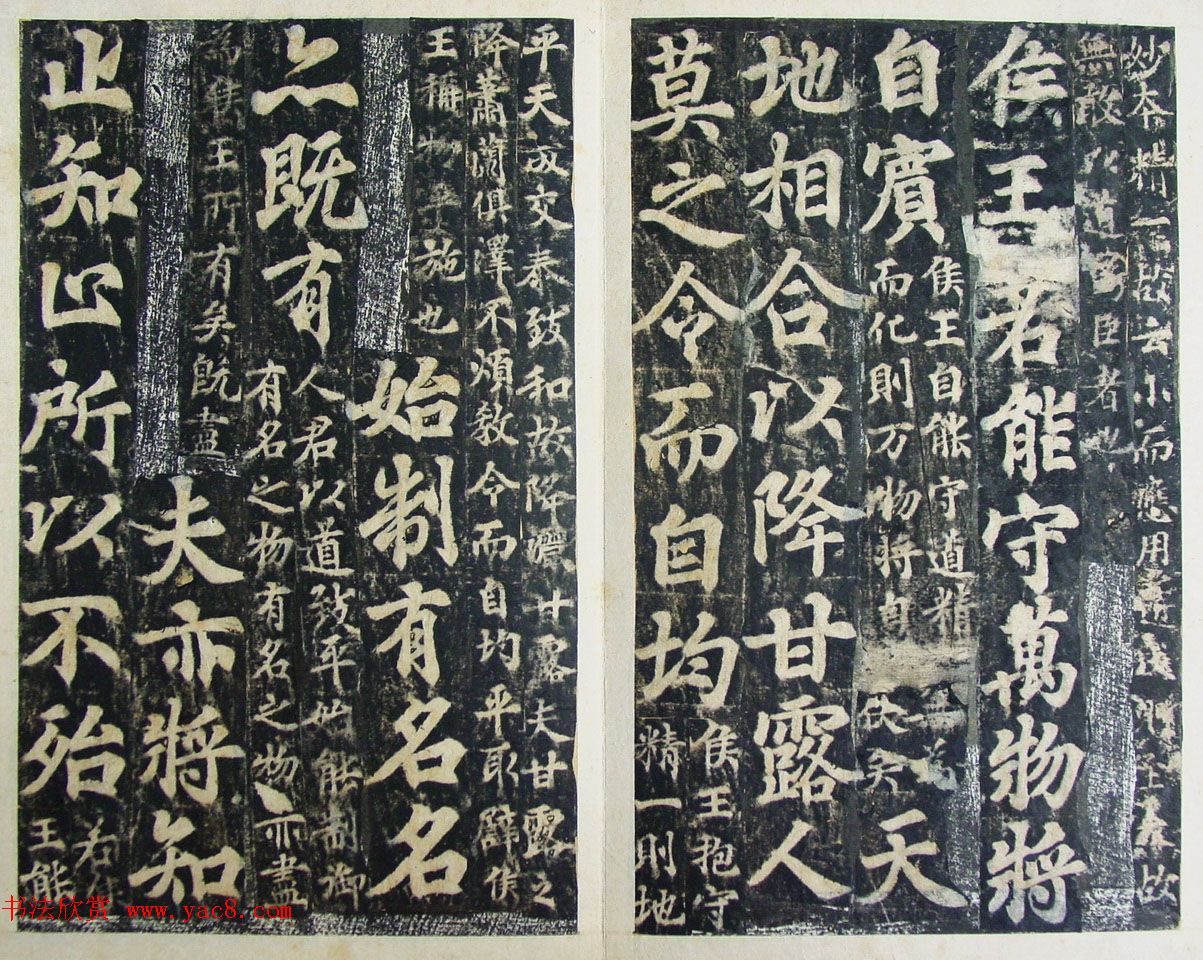 妙本精一故云小而應用
無敢以道為臣者
侯王若能守萬物將
自賓
侯王自能守道精
而化則万物將自
天
地相合以降甘露人
莫之令而自均
侯王抱守
精一則地
平天成交泰致和故降濃甘露夫甘露之
降蕭蘭俱澤不煩教令而自均平取譬侯
王稱物平施也
始制有名名
亦既有
人君以道致平始能制御
有名之物有名之物亦盡
為侯王所有矣既盡
夫亦將知
止知止所以不殆
若侯
王能
书法欣赏 www.yac8.com